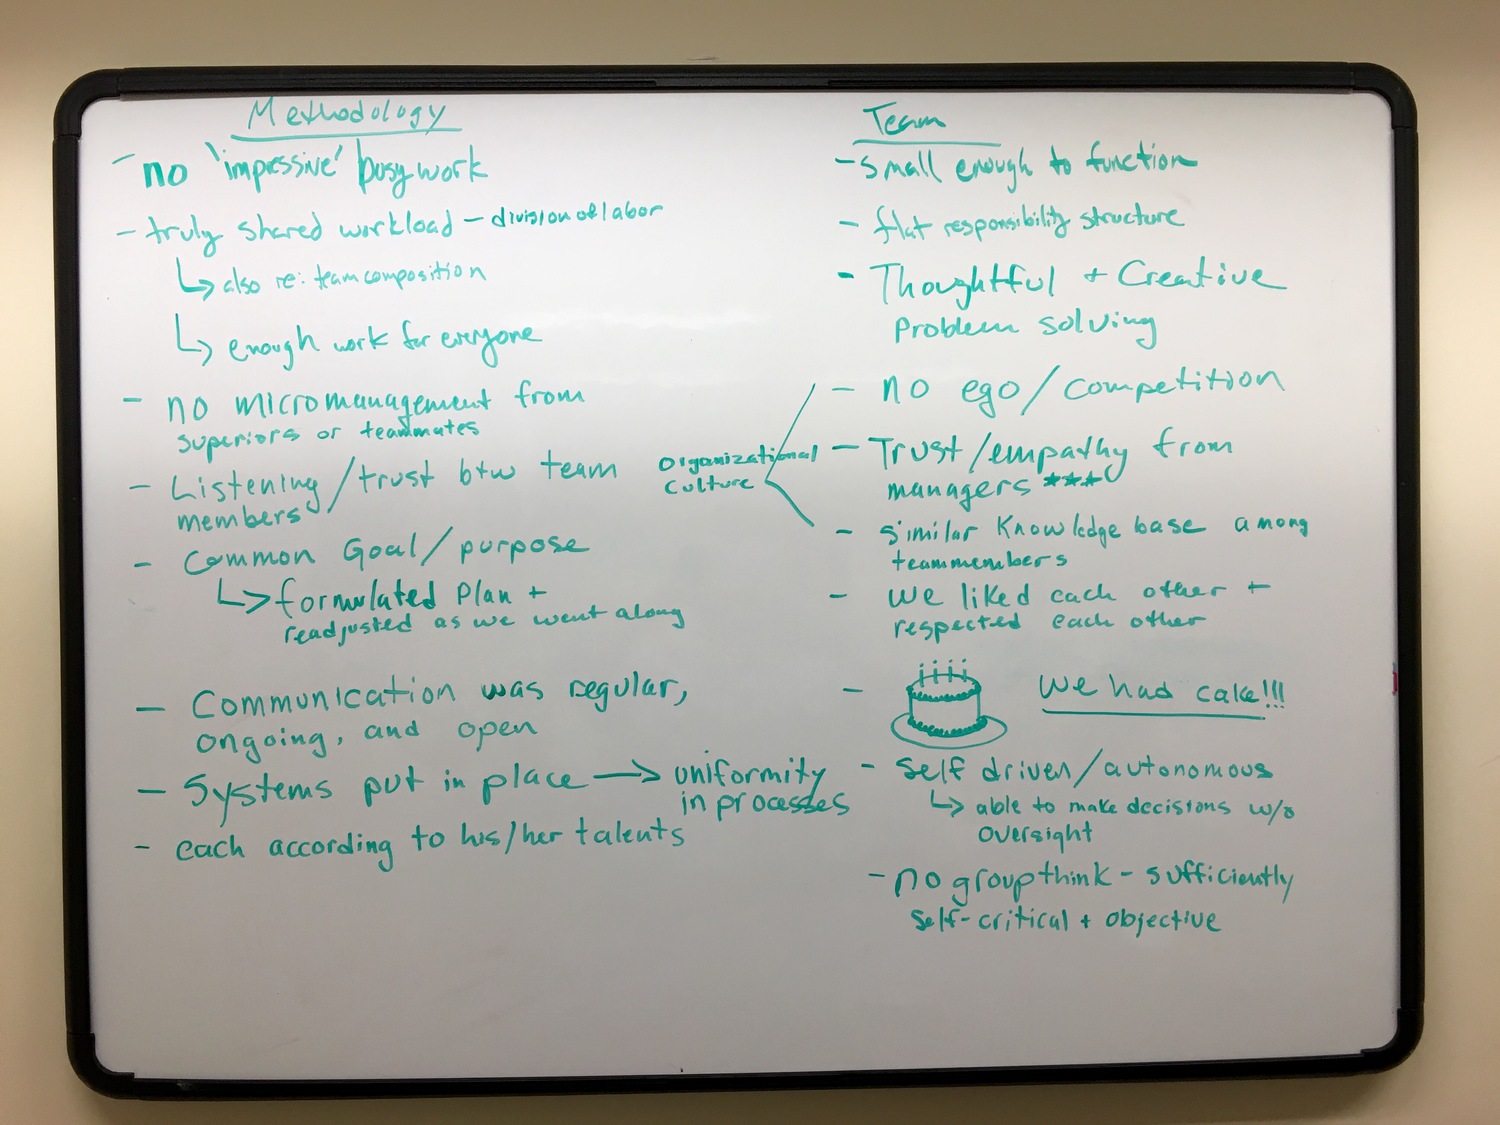 Methodology
- no 'impressive' busy work
- truly shared workload - division of labor
↳ also re: team composition
↳ enough work for everyone
- no micromanagement from
superiors or teammates
- Listening/trust btw team
members
- Common Goal/purpose
↳ formulated plan +
readjusted as we went along
- Communication was regular,
ongoing, and open
- Systems put in place → uniformity
in processes
- each according to his/her talents
Organizational
Culture
Team
- small enough to function
- flat responsibility structure
- Thoughtful + Creative
Problem solving
- no ego/competition
- Trust/empathy from
managers ***
- similar knowledge base among
teammembers
- we liked each other +
respected each other
- We had cake!!!
- self driven/autonomous
↳ able to make decisions w/o
oversight
- no groupthink - sufficiently
self-critical + objective